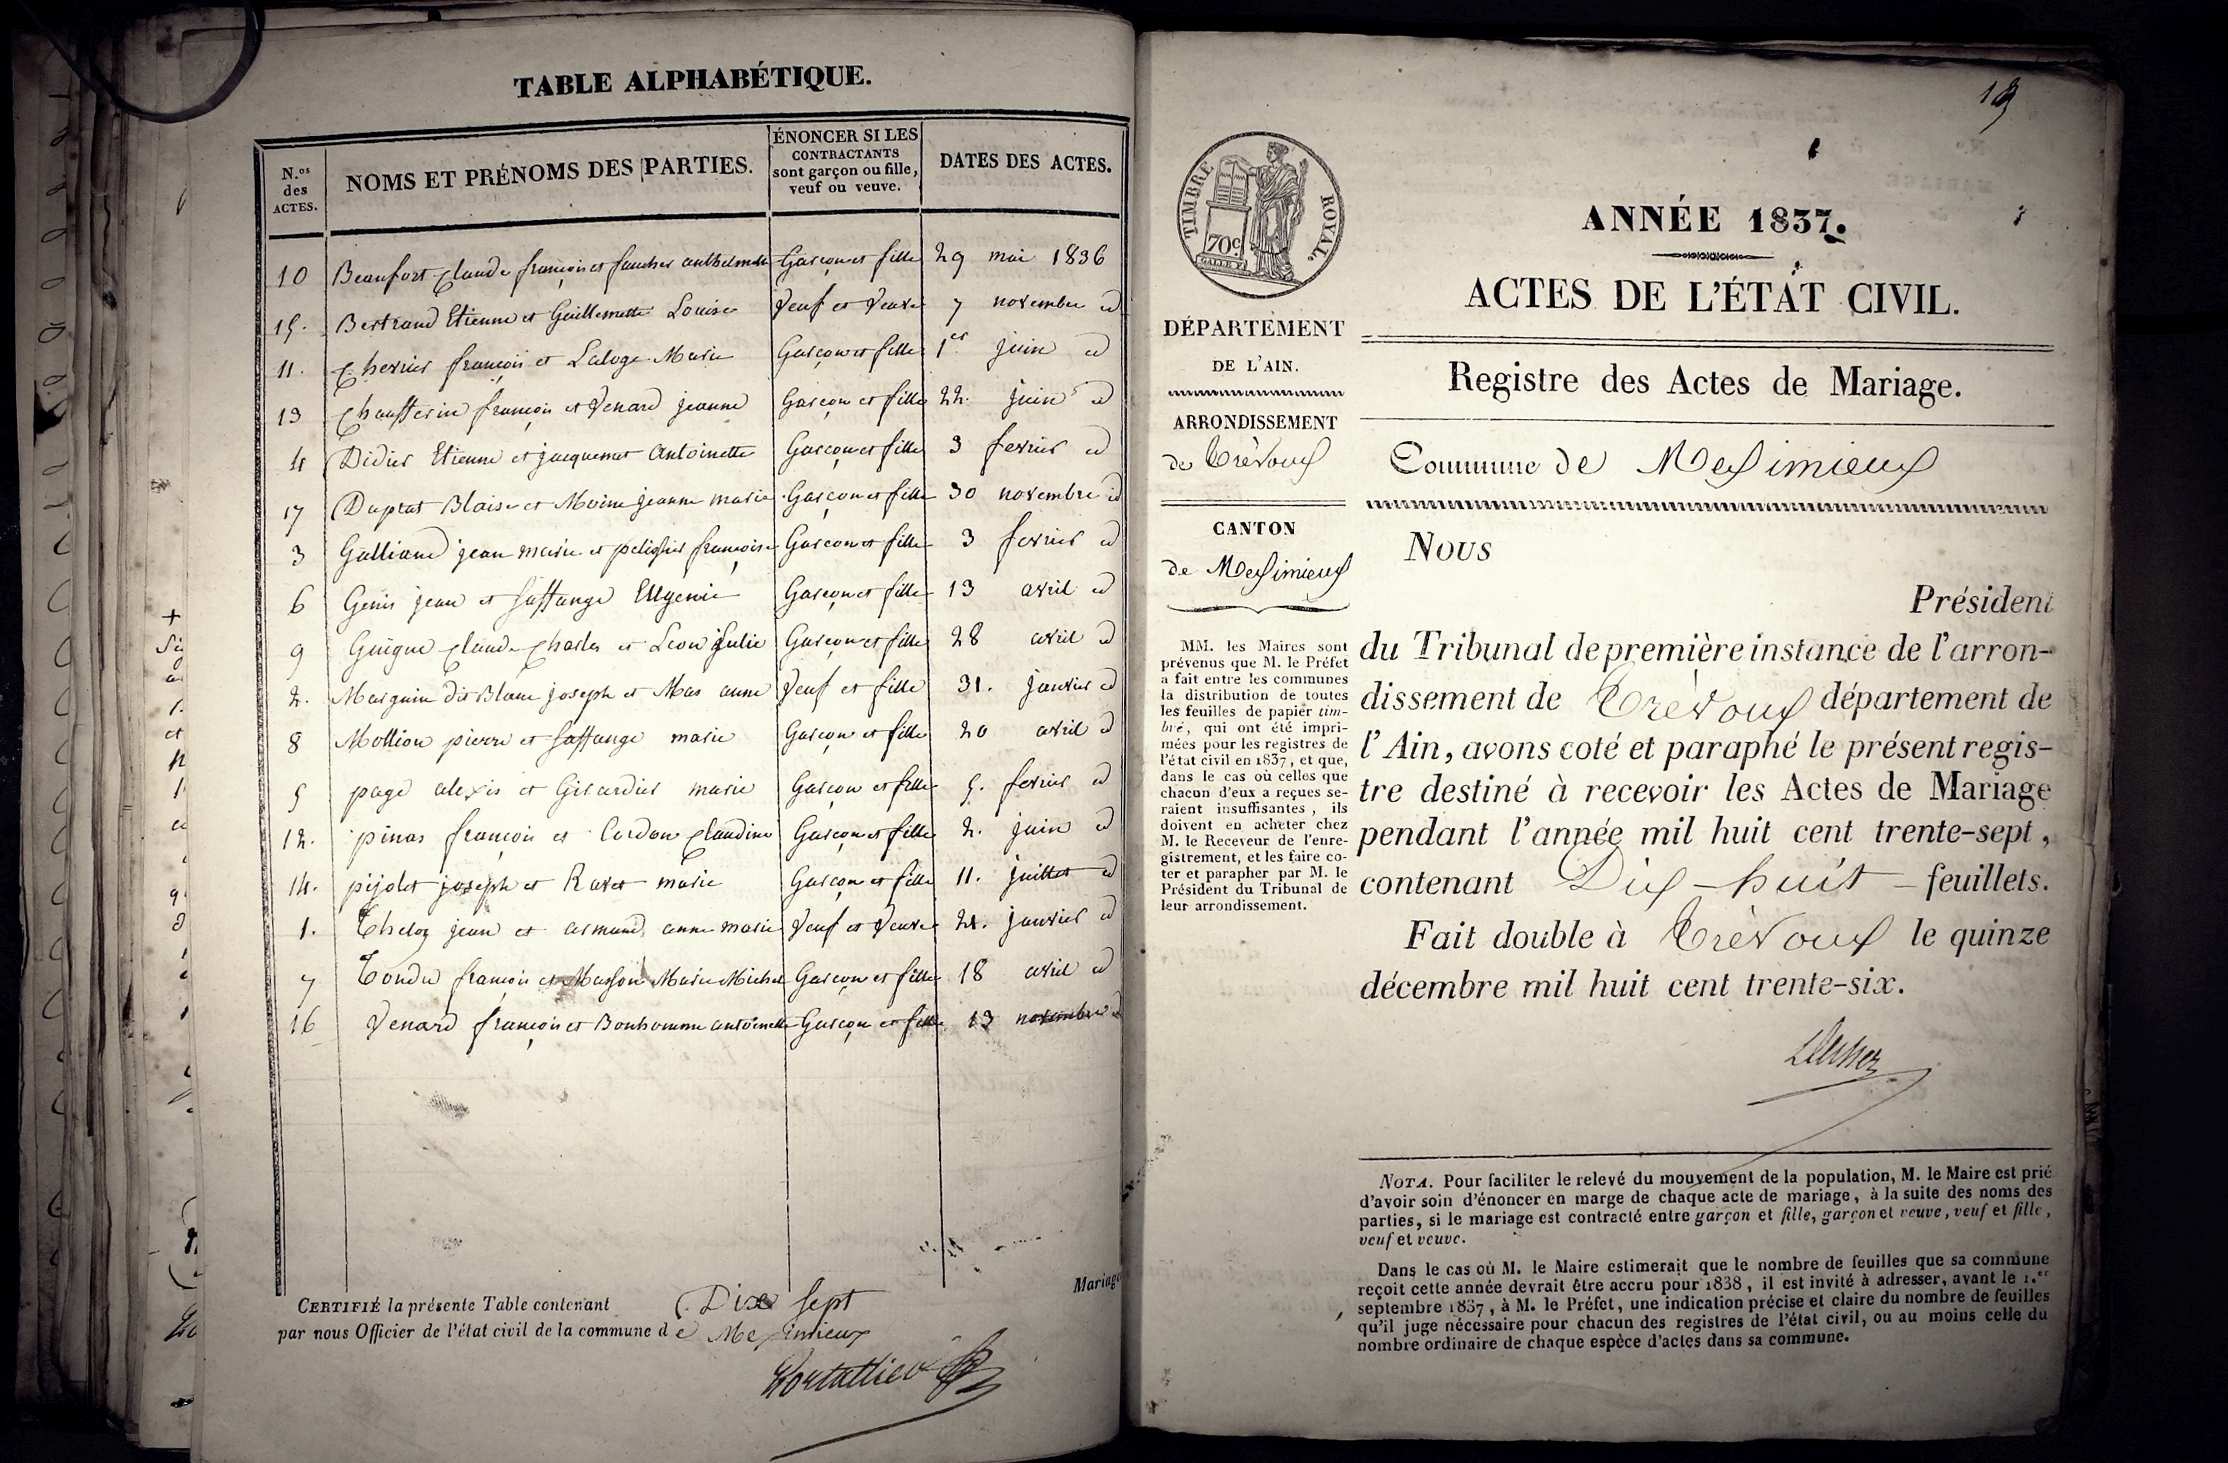 TABLE ALPHABÉTIQUE.
N.os des ACTES.
NOMS ET PRÉNOMS DES PARTIES.
ÉNONCER SI LES
CONTRACTANTS
sont garçon ou fille,
veuf ou veuve.
DATES DES ACTES.
10 Beaufort Claude françois et faucher anthelmette Garçon et fille 29 mai 1836
15. Bertrand Etienne et Guillemette Louise Veuf et Veuve 7 novembre id
11. Chevrier françois et Laloge Marie Garçon et fille 1er juin id
13 Chausserin françois et Venard jeanne Garçon et fille 22. juin id
4 Didier Etienne et jacquemet Antoinette Garçon et fille 3 fevrier id
17 Duprat Blaise et Moine jeanne marie Garçon et fille 30 novembre id
3 Galliand jean marie et françoise Garçon et fille 3 fevrier id
6 Genin jean et Eugenie Garçon et fille 13 avril id
9 Guigue Claude Charles et Leon julie Garçon et fille 28 avril id
2. Marguin dit Blanc joseph et Mas anne Veuf et fille 31. janvier id
8 Mollion pierre et marie Garçon et fille 20 avril id
5 page alexis et Girardier marie Garçon et fille 5. fevrier id
12. pinas françois et Cardon Claudine Garçon et fille 2. juin id
14. pijolet joseph et Ravet marie Garçon et fille 11. juillet id
1. jean et armand anne marie Veuf et Veuve 21. janvier id
7 Tondu françois et Masson Marie Michel Garçon et fille 18 avril id
16 Venard françois et Bonhomme antoinette Garçon et fille 13 novembre id
Mariage
CERTIFIÉ la présente Table contenant Dix sept
par nous Officier de l'état civil de la commune de Meximieux
19
TIMBRE ROYAL.
70c
DÉPARTEMENT
DE L'AIN.
ARRONDISSEMENT
de Trévoux
CANTON
de Meximieux
MM. les Maires sont
prévenus que M. le Préfet
a fait entre les communes
la distribution de toutes
les feuilles de papier tim-
bré, qui ont été impri-
mées pour les registres de
l'état civil en 1837, et que,
dans le cas où celles que
chacun d'eux a reçues se-
raient insuffisantes, ils
doivent en acheter chez
M. le Receveur de l'enre-
gistrement, et les faire co-
ter et parapher par M. le
Président du Tribunal de
leur arrondissement.
ANNÉE 1837.
ACTES DE L'ÉTAT CIVIL.
Registre des Actes de Mariage.
Commune de Meximieux
Nous
Président
du Tribunal de première instance de l'arron-
dissement de Trévoux département de
l'Ain, avons coté et paraphé le présent regis-
tre destiné à recevoir les Actes de Mariage
pendant l'année mil huit cent trente-sept,
contenant Dix-huit feuillets.
Fait double à Trévoux le quinze
décembre mil huit cent trente-six.
NOTA. Pour faciliter le relevé du mouvement de la population, M. le Maire est prié
d'avoir soin d'énoncer en marge de chaque acte de mariage, à la suite des noms des
parties, si le mariage est contracté entre garçon et fille, garçon et veuve, veuf et fille,
veuf et veuve.
Dans le cas où M. le Maire estimerait que le nombre de feuilles que sa commune
reçoit cette année devrait être accru pour 1838, il est invité à adresser, avant le 1.er
septembre 1837, à M. le Préfet, une indication précise et claire du nombre de feuilles
qu'il juge nécessaire pour chacun des registres de l'état civil, ou au moins celle du
nombre ordinaire de chaque espèce d'actes dans sa commune.